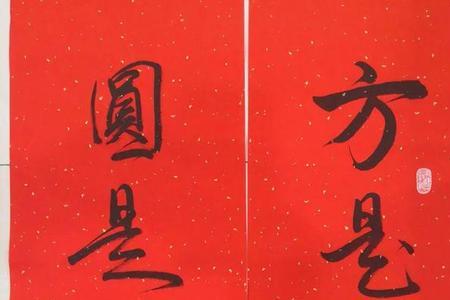 方是
圓是